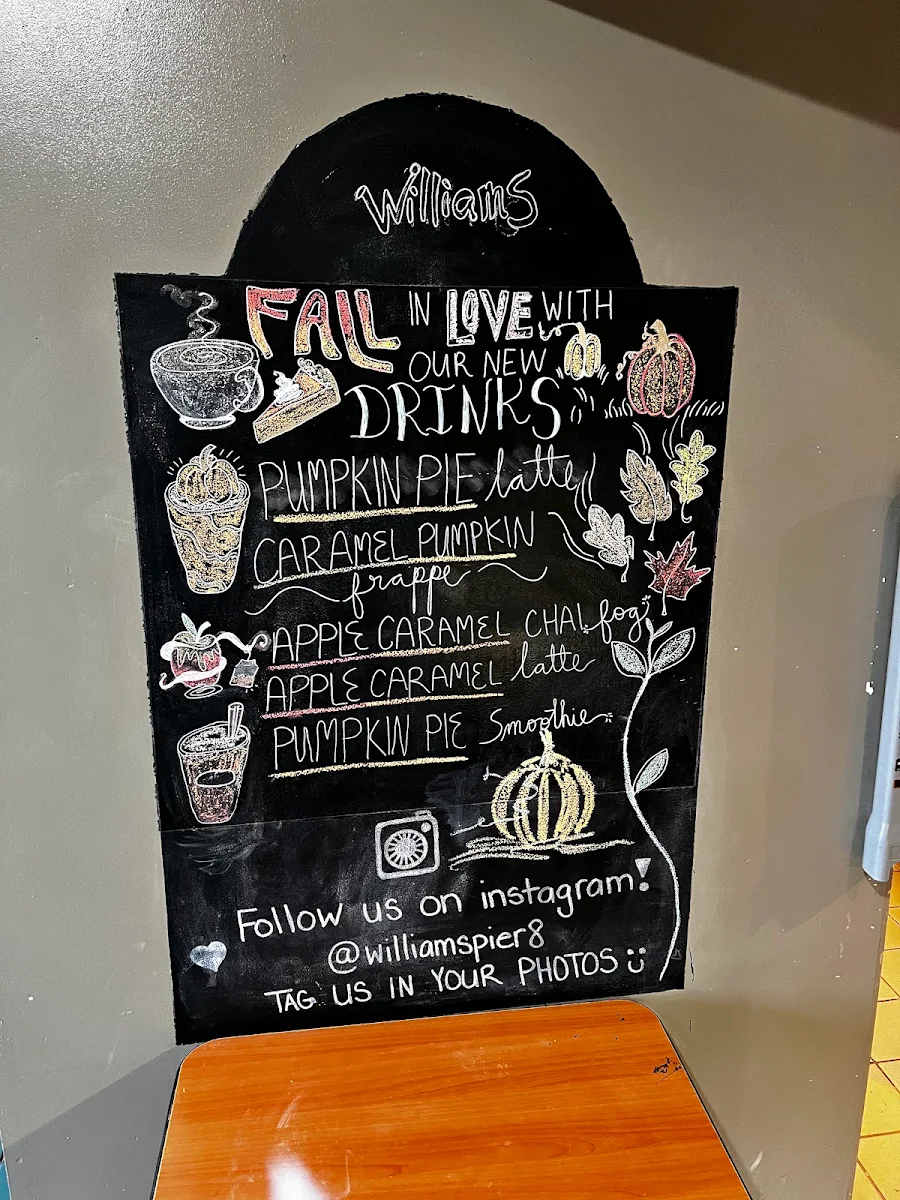 Williams
FALL IN LOVE WITH
OUR NEW
DRINKS
PUMPKIN PIE latte
CARAMEL PUMPKIN
frappe
APPLE CARAMEL CHAI fog
APPLE CARAMEL latte
PUMPKIN PIE Smoothie
Follow us on instagram!
@williamspier8
TAG US IN YOUR PHOTOS